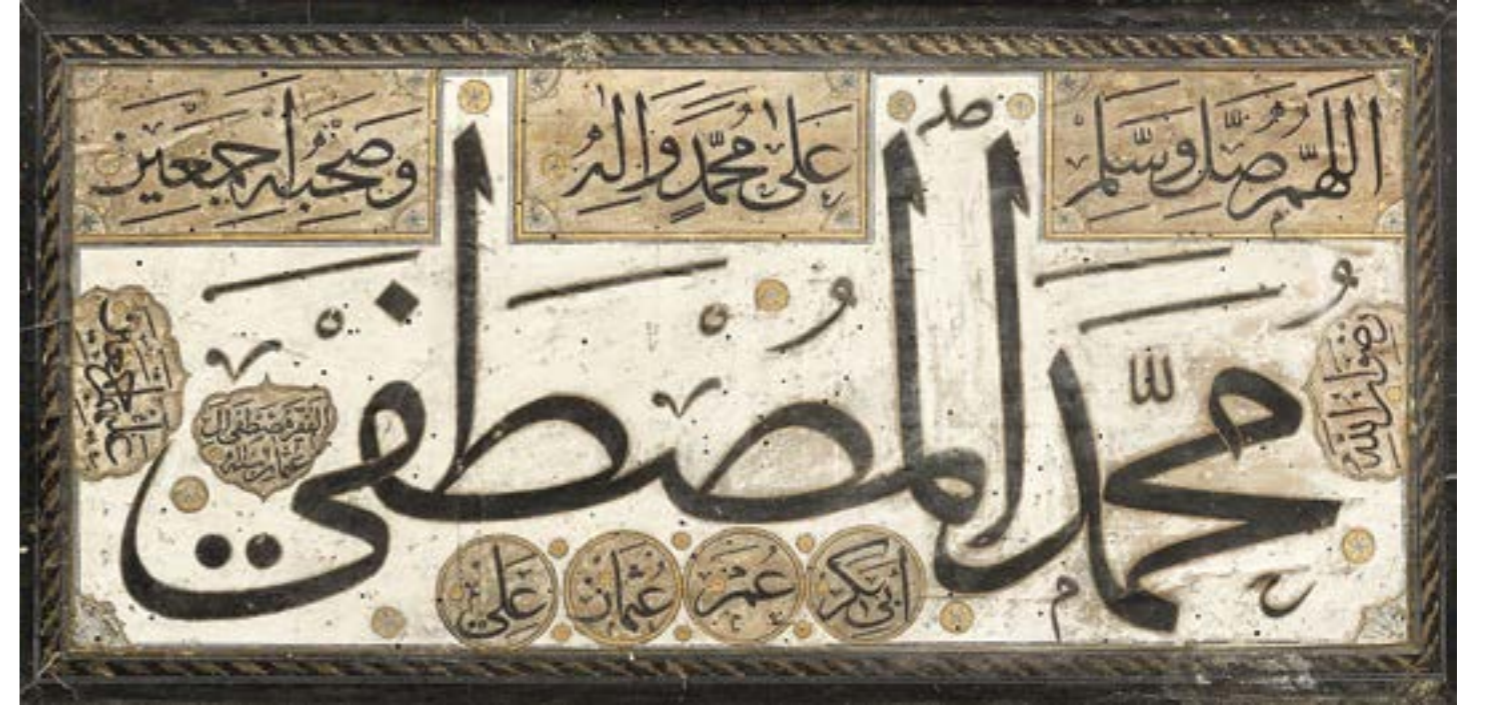 اللهم صل وسلم على محمد واله وصحبه اجمعين
محمد المصطفى
رضوان الله
ابى بكر عمر عثمان على
عليهم اجمعين